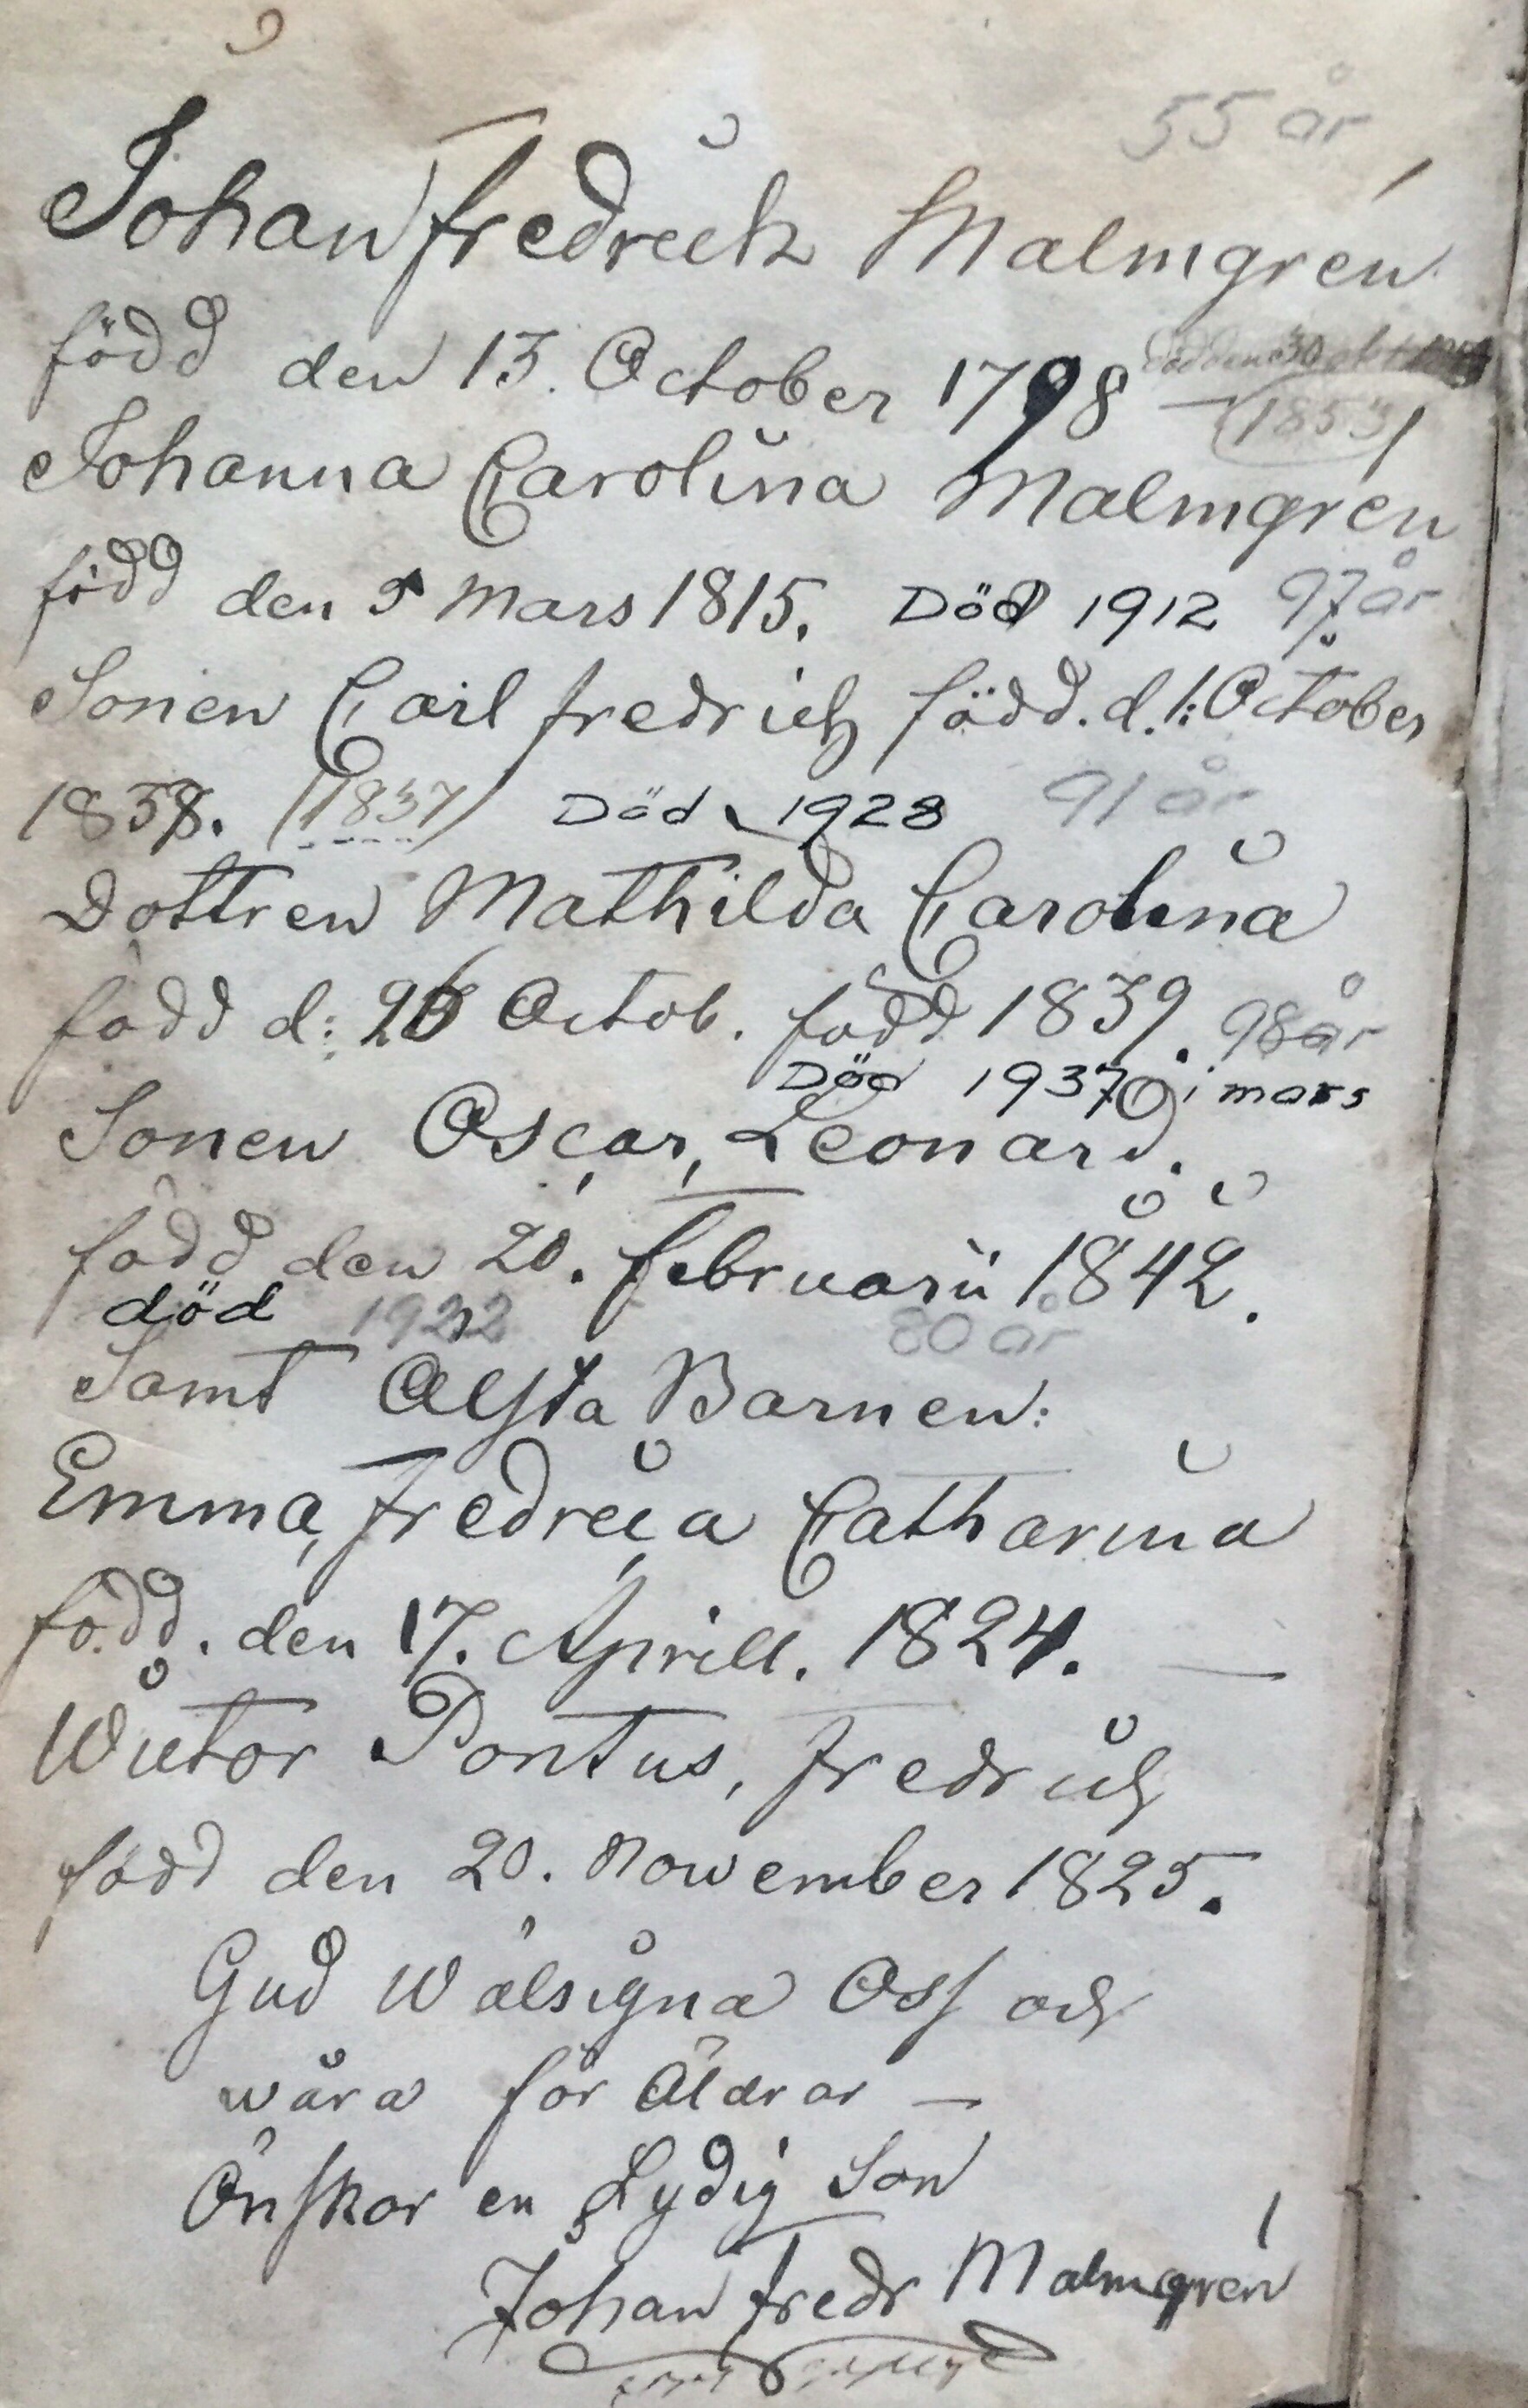 55 år
Johan Fredrick Malmgren
född den 13. October 1798 –
Död den 30 okt
(1853)
Johanna Carolina Malmgren
född den 5 Mars 1815. Död 1912 97 år
Sonen Carl fredrich född. d. 1: October
1838. (1837) Död 1928 91 år
Dottren Mathilda Carolina
född d: 26 Octob. född 1839. 98 år
Död 1937 i mars
Sonen Oscar, Leonard.
född den 20. februarii 1842.
död 1922 80 år
Samt Älsta Barnen:
Emma, fredrica Catharina
född. den 17. Aprill. 1824. –
Wictor Pontus, fredrich
född den 20. November 1825.
Gud Wälsigna Oss och
wåra för Äldrar –
Önskar en Lydig Son
Johan fredr Malmgren